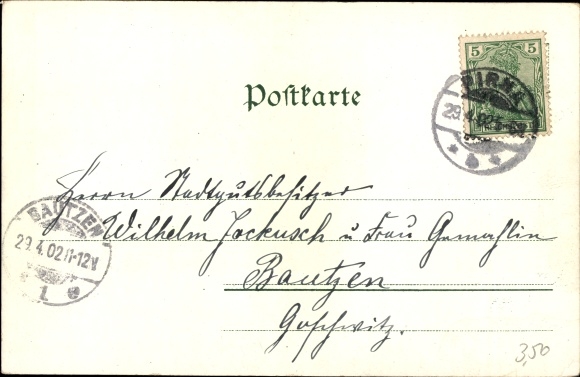 5 5
Postkarte
PIRNA
29.4.02
Herrn Stadtgutsbesitzer
Wilhelm Jockusch u Frau Gemahlin
BAUTZEN
29.4.02 11-12V
1 e
Bautzen
Goschwitz.
3,50